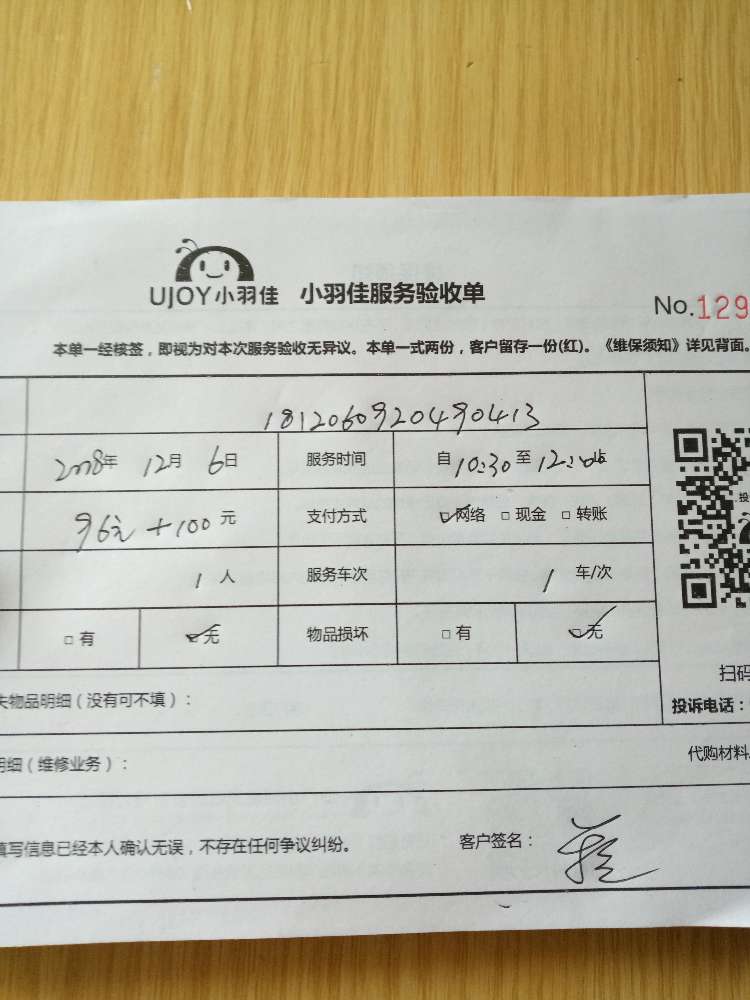 UJOY小羽佳 小羽佳服务验收单
No.129
本单一经核签，即视为对本次服务验收无异议。本单一式两份，客户留存一份(红)。《维保须知》详见背面。
1812060920490413
年 12月 6日 服务时间 自 10:30 至 12:
96元+100 元 支付方式 ☑网络 □现金 □转账
1 人 服务车次 1 车/次
□有 ☑无 物品损坏 □有 ☑无
扫码
失物品明细（没有可不填）：
投诉电话：
明细（维修业务）：
代购材料
填写信息已经本人确认无误，不存在任何争议纠纷。 客户签名：